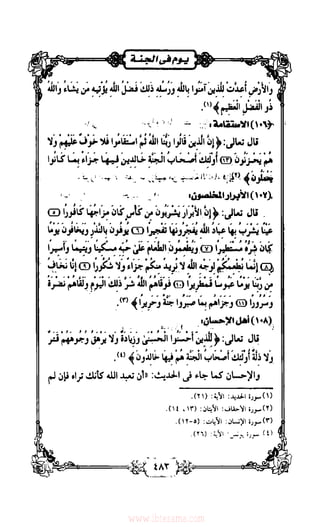 يوم في الجنة
والأرض أعدت للذين آمنوا بالله ورسله ذلك فضل الله يؤتيه من يشاء والله
ذو الفضل العظيم﴾(١).
(١٠٦) الاستقامة:
قال تعالى: ﴿إن الذين قالوا ربنا الله ثم استقاموا فلا خوف عليهم ولا
هم يحزنون (١٣) أولئك أصحاب الجنة خالدين فيها جزاء بما كانوا
يعملون﴾(٢).
(١٠٧) الأبرار المخلصون:
قال تعالى: ﴿إن الأبرار يشربون من كأس كان مزاجها كافورا (٥)
عينا يشرب بها عباد الله يفجرونها تفجيرا (٦) يوفون بالنذر ويخافون يوما
كان شره مستطيرا (٧) ويطعمون الطعام على حبه مسكينا ويتيما وأسيرا
(٨) إنما نطعمكم لوجه الله لا نريد منكم جزاء ولا شكورا (٩) إنا نخاف
من ربنا يوما عبوسا قمطريرا (١٠) فوقاهم الله شر ذلك اليوم ولقاهم نضرة
وسرورا (١١) وجزاهم بما صبروا جنة وحريرا﴾(٣).
(١٠٨) أهل الإحسان:
قال تعالى: ﴿للذين أحسنوا الحسنى وزيادة ولا يرهق وجوههم قتر
ولا ذلة أولئك أصحاب الجنة هم فيها خالدون﴾(٤).
والإحسان كما جاء في الحديث: «أن تعبد الله كأنك تراه فإن لم
(١) سورة الحديد: الآية: (٢١).
(٢) سورة الأحقاف: الآيتان: (١٣، ١٤).
(٣) سورة الإنسان: الآيات: (٥-١٢).
(٤) سورة يونس: الآية: (٢٦).
٤٨٣
www.ibtesama.com